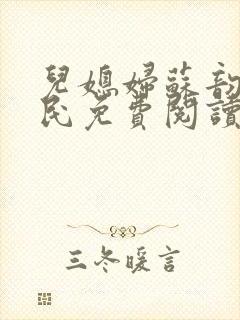 兒媳婦蘇韵
民免費閱讀
三冬暖言